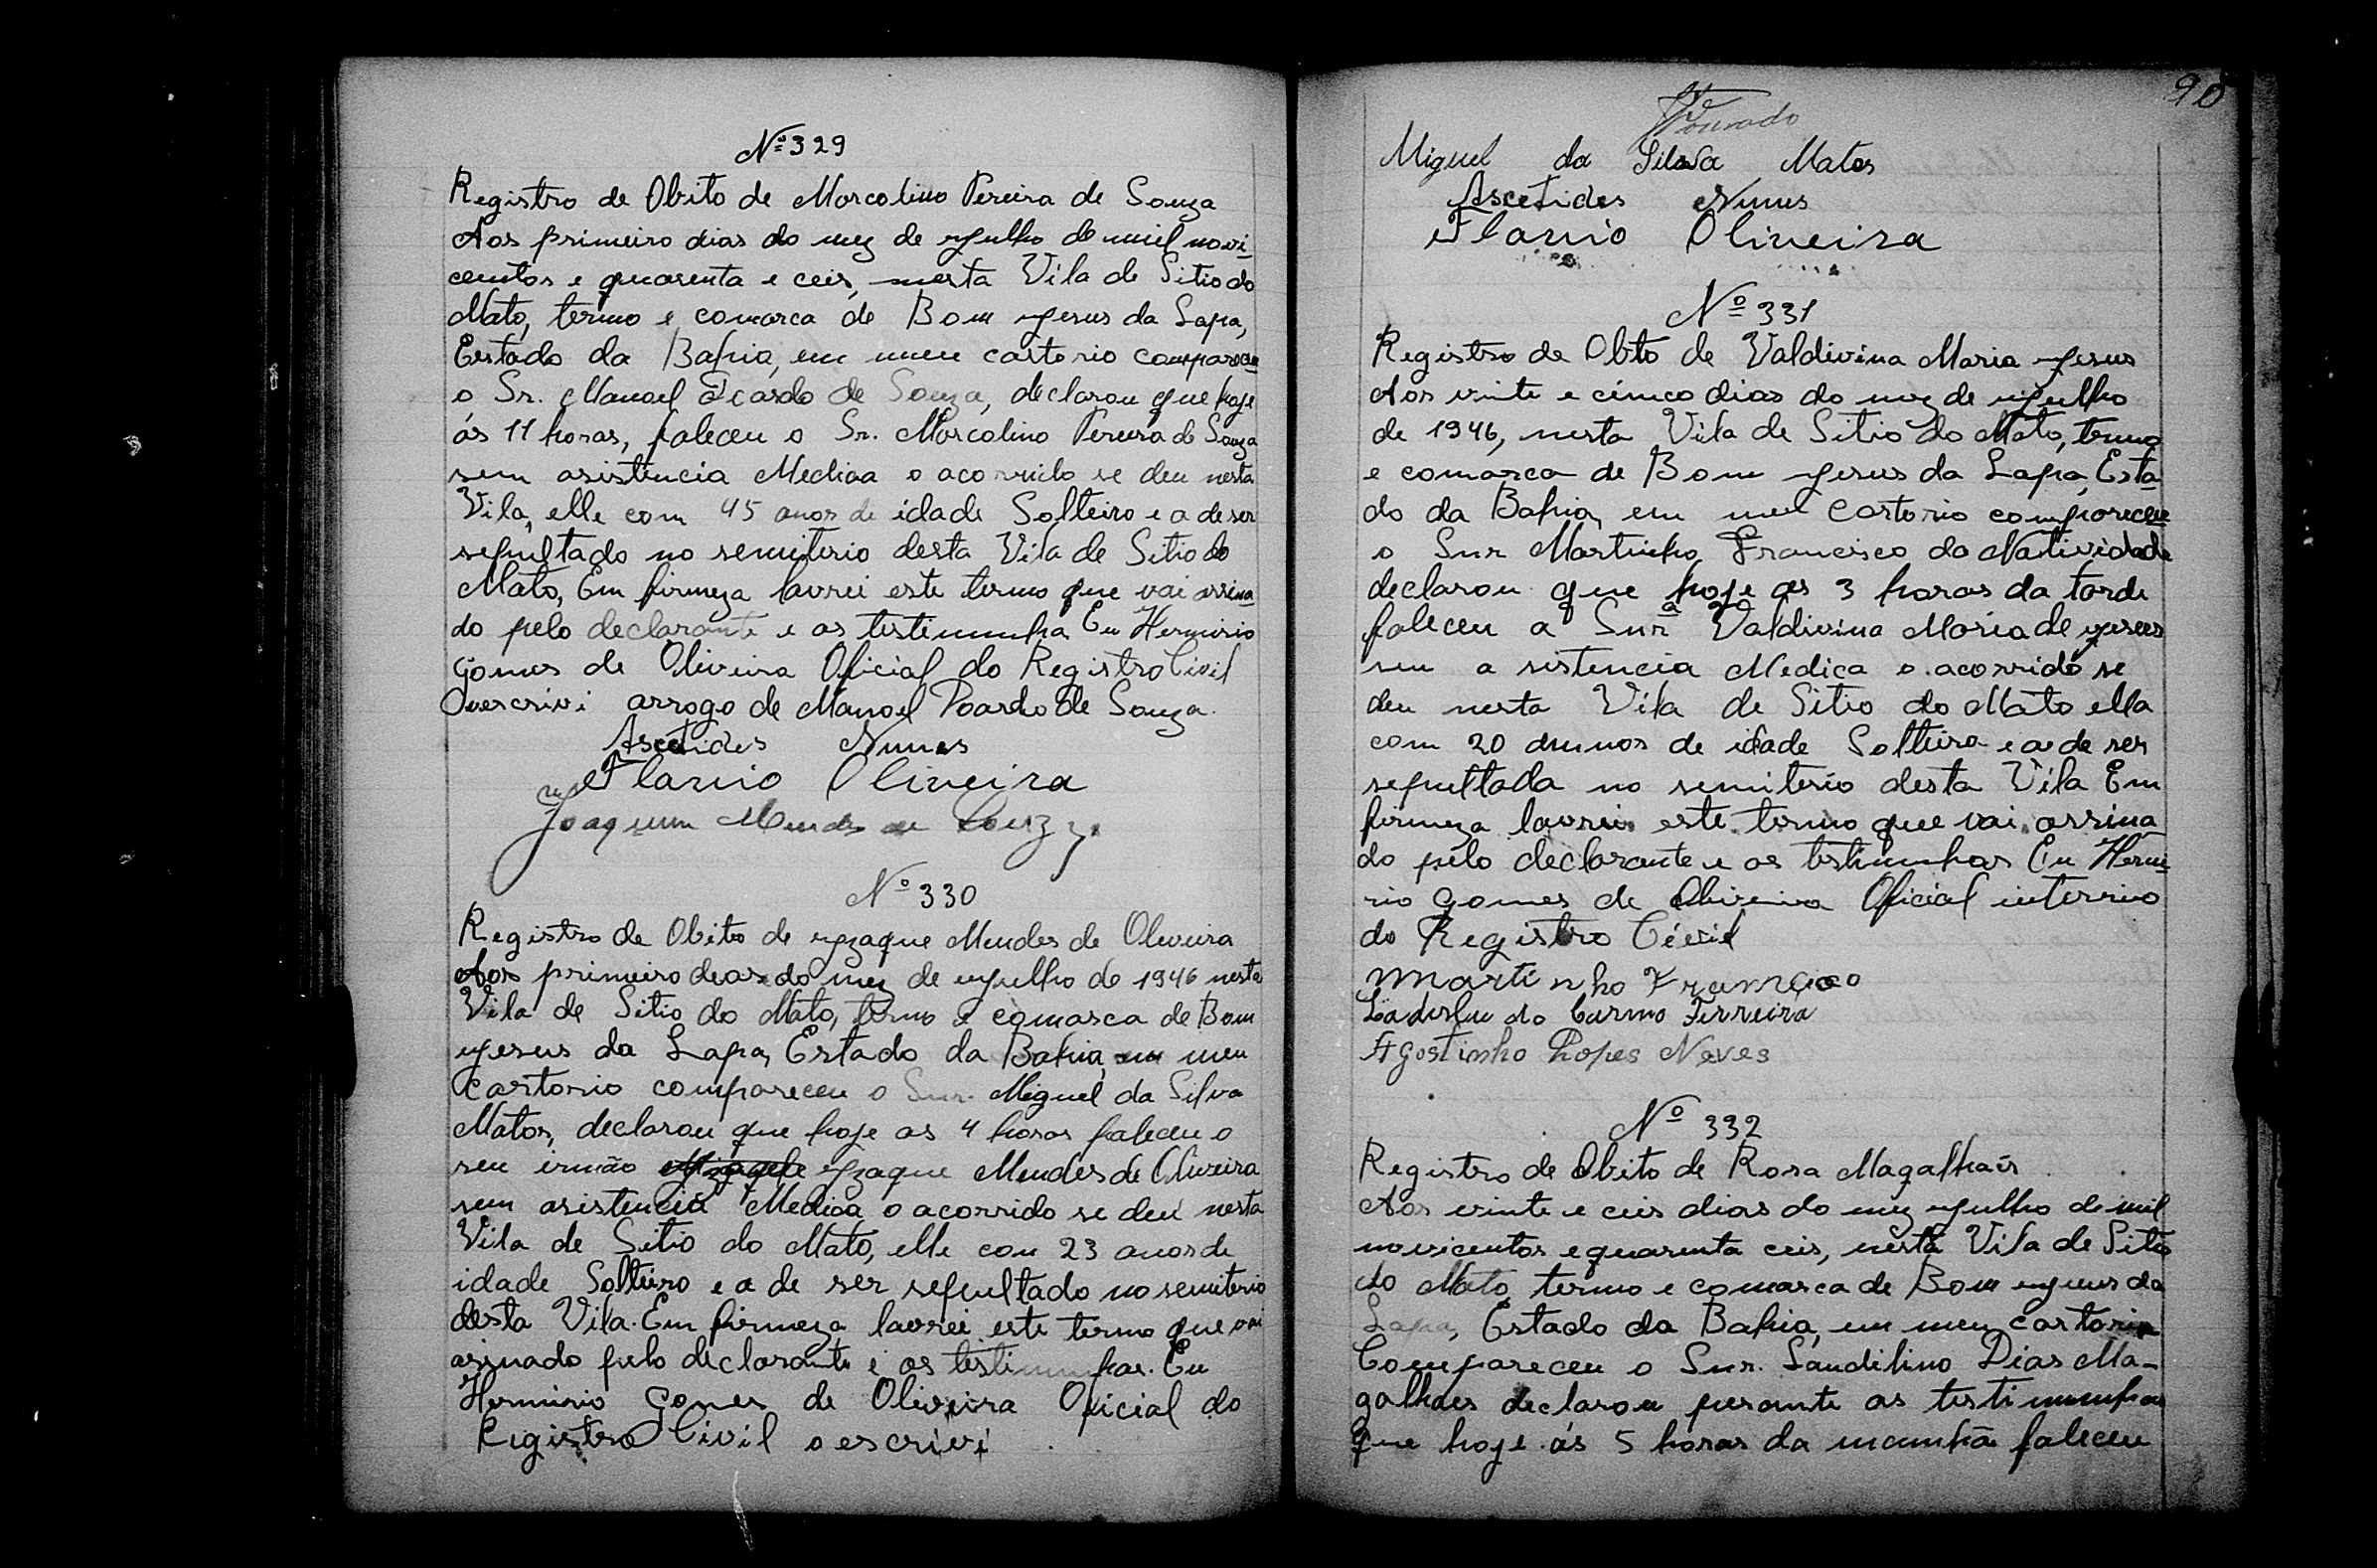 Nº 329
Registro de Obito de Marcolino Pereira de Souza
Aos primeiro dias do mez de yulho de mil novi-
centos e quarenta e ceis, nesta Vila de Sitio do
Mato, termo e comarca de Bom yesus da Lapa,
Estado da Bahia, em meu cartorio compareceu
o Sr. Manoel de Souza, declarou que hoje
ás 11 horas, faleceu o Sr. Marcolino Pereira de Souza
sem asistencia Medica o acorrido se deu nesta
Vila, elle com 45 anos de idade Solteiro e a de ser
sepultado no semiterio desta Vila de Sitio do
Mato, Em firmeza lavrei este termo que vai assina-
do pelo declarante e as testimunha Eu Herminio
Gomes de Oliveira Oficial do Registro Civil
arrogo de Manoel de Souza.
Ascetides Nunes
Flavio Oliveira
Joaquim Mendes de Souza
Nº 330
Registro de Obito de yzaque Mendes de Oliveira
Aos primeiro dias do mez de yulho de 1946 nesta
Vila de Sitio do Mato, termo e comarca de Bom
yesus da Lapa, Estado da Bahia, em meu
cartorio compareceu o Snr. Miguel da Silva
Matos, declarou que hoje as 4 horas faleceu o
seu irmão yzaque Mendes de Oliveira
sem asistencia Medica o acorrido se deu nesta
Vila de Sitio do Mato, elle con 23 anos de
idade Solteiro e a de ser sepultado no semiterio
desta Vila. Em firmeza lavrei este termo que vai
asinado pelo declarante e as testimunhas. Eu
Herminio Gomes de Oliveira Oficial do
Registro Civil o escrivi
90
Miguel da Silva Matos
Ascetides Nunes
Flavio Oliveira
Nº 331
Registro de Obto de Valdivina Maria yesus
Aos vinte e cinco dias do mez de yulho
de 1946, nesta Vila de Sitio do Mato, termo
e comarca de Bom yesus da Lapa, Esta-
do da Bahia, em meu Cartorio compareceu
o Snr Martinho Francisco da Natividade
declarou que hoje as 3 horas da tarde
faleceu a Snrª Valdivina Maria de yesus
sem a sistencia Medica o acorrido se
deu nesta Vila de Sitio do Mato ella
com 20 annos de idade Solteira e a de ser
sepultada no semiterio desta Vila Em
firmeza lavrei este termo que vai assina-
do pelo declarante e as testimunhas Eu Hermi-
nio Gomes de Oliveira Oficial interino
do Registro Civil
Martinho Francisco
Ladislau do Carmo Ferreira
Agostinho Lopes Neves
Nº 332
Registro de Obito de Rosa Magalhais
Aos vinte e ceis dias do mez yulho de mil
novicentos e quarenta ceis, nesta Vila de Sitio
do Mato, termo e comarca de Bom yesus da
Lapa, Estado da Bahia, em meu cartorio
Compareceu o Snr. Laudilino Dias Ma-
galhaes declarou perante as testimunhas
que hoje ás 5 horas da manhã faleceu